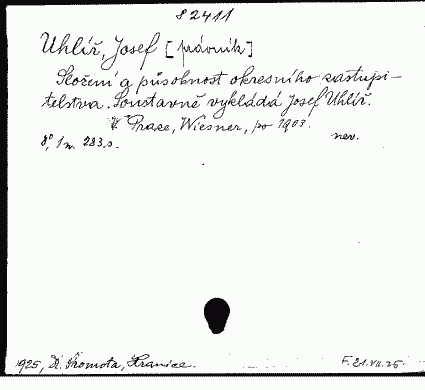 82411
Uhlíř, Josef [právník]
Složení a působnost okresního zastupi-
telstva. Soustavně vykládá Josef Uhlíř.
V Praze, Wiesner, po 1903.
8°, 1 m. 283 s. nev.
1925, Dr. Kromota, Hranice. F. 21.VII.25.